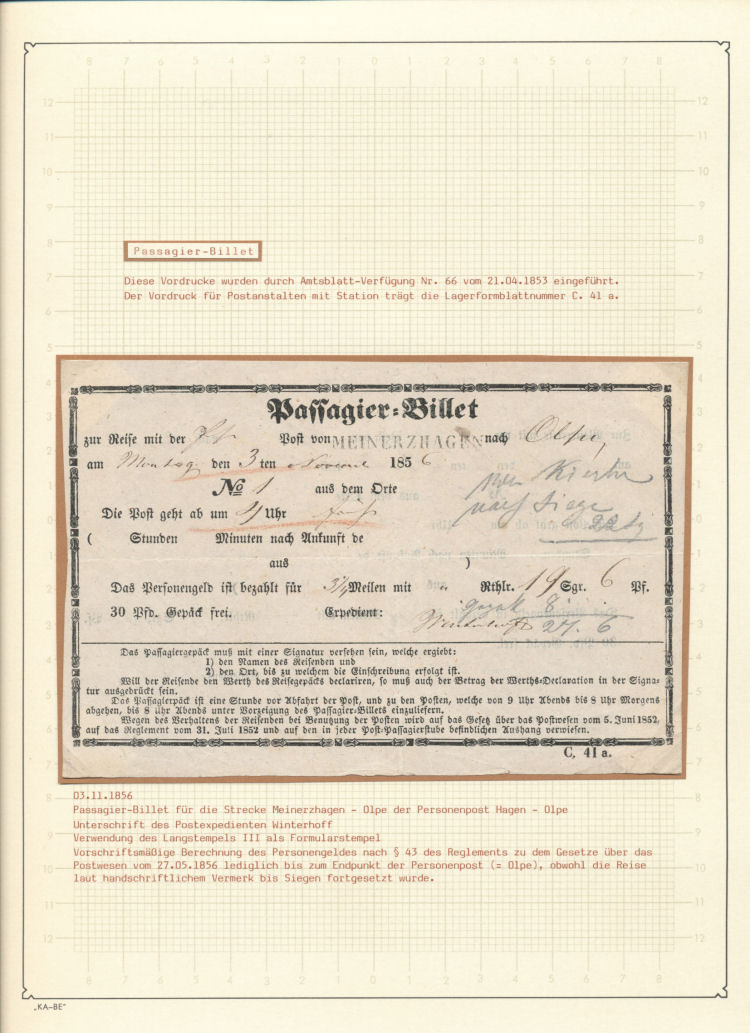 Passagier-Billet
Diese Vordrucke wurden durch Amtsblatt-Verfügung Nr. 66 vom 21.04.1853 eingeführt.
Der Vordruck für Postanstalten mit Station trägt die Lagerformblattnummer C. 41 a.
Passagier-Billet
zur Reise mit der Post von MEINERZHAGEN nach Olpe,
am Montag den 3 ten November 1856
No 1 aus dem Orte
nach Siegen
Die Post geht ab um 4 Uhr früh
( Stunden Minuten nach Ankunft de
aus )
Das Personengeld ist bezahlt für 3¼ Meilen mit " Rthlr. 19 Sgr. 6 Pf.
30 Pfd. Gepäck frei. Expedient: Gepäck 8
Winterhoff 27. 6
Das Passagiergepäck muß mit einer Signatur versehen sein, welche ergiebt:
1) den Namen des Reisenden und
2) den Ort, bis zu welchem die Einschreibung erfolgt ist.
Will der Reisende den Werth des Reisegepäcks declariren, so muß auch der Betrag der Werths-Declaration in der Signa-
tur ausgedrückt sein.
Das Passagierpäck ist eine Stunde vor Abfahrt der Post, und zu den Posten, welche von 9 Uhr Abends bis 8 Uhr Morgens
abgehen, bis 8 Uhr Abends unter Vorzeigung des Passagier-Billets einzuliefern.
Wegen des Verhaltens der Reisenden bei Benutzung der Posten wird auf das Gesetz über das Postwesen vom 5. Juni 1852,
auf das Reglement vom 31. Juli 1852 und auf den in jeder Post-Passagierstube befindlichen Aushang verwiesen.
C. 41 a.
03.11.1856
Passagier-Billet für die Strecke Meinerzhagen - Olpe der Personenpost Hagen - Olpe
Unterschrift des Postexpedienten Winterhoff
Verwendung des Langstempels III als Formularstempel
Vorschriftsmäßige Berechnung des Personengeldes nach § 43 des Reglements zu dem Gesetze über das
Postwesen vom 27.05.1856 lediglich bis zum Endpunkt der Personenpost (= Olpe), obwohl die Reise
laut handschriftlichem Vermerk bis Siegen fortgesetzt wurde.
„KA-BE"